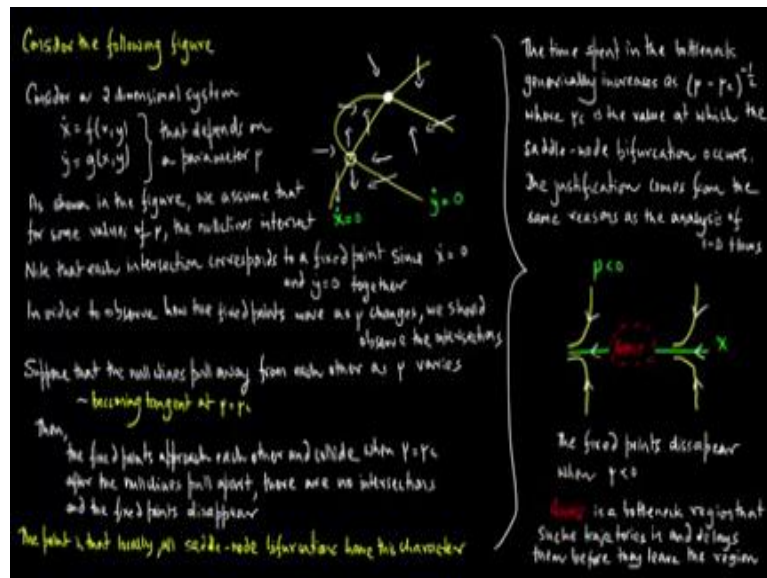 Consider the following figure
Consider a 2 dimensional system
ẋ = f(x,y)
ẏ = g(x,y)
that depends on
a parameter μ
As shown in the figure, we assume that
for some values of μ, the nullclines intersect
Note that each intersection corresponds to a fixed point since ẋ = 0
and ẏ = 0 together
In order to observe how the fixed points move as μ changes, we should
observe the intersections
Suppose that the nullclines pull away from each other as μ varies
~ becoming tangent at μ = μc
Then,
the fixed points approach each other and collide when μ = μc
after the nullclines pull apart, there are no intersections
and the fixed points disappear
The point is that locally, all saddle-node bifurcations have this character
ẋ = 0
ẏ = 0
The time spent in the bottleneck
generically increases as (μ - μc)^-1/2
where μc is the value at which the
saddle-node bifurcation occurs.
The justification comes from the
same reasons as the analysis of
μ < 0
X
The fixed points dissapear
when μ < 0
is a bottleneck region that
trajectories in and delays
them before they leave the region